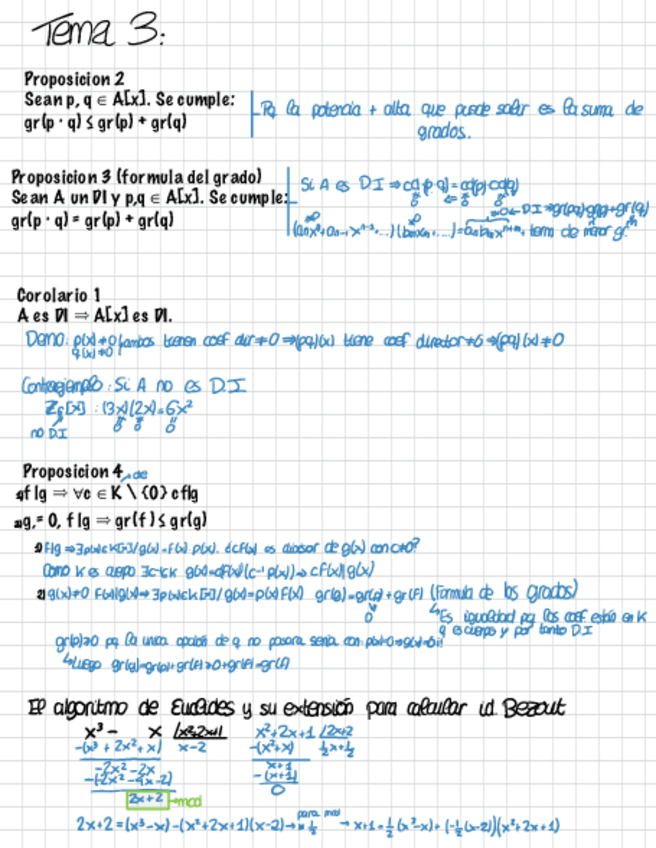 Tema 3:
Proposicion 2
Sean p, q ∈ A[x]. Se cumple:
gr(p · q) ≤ gr(p) + gr(q)
Pq la potencia + alta que puede salir es la suma de
grados.
Proposicion 3 (formula del grado)
Sean A un DI y p,q ∈ A[x]. Se cumple:
gr(p · q) = gr(p) + gr(q)
Si A es DI ⇒ cd(p·q)=cd(p)·cd(q)
term de menor gr.
Corolario 1
A es DI ⇒ A[x] es DI.
Demo: p(x)≠0 q(x)≠0 ambos tienen coef dir≠0 ⇒(pq)(x) tiene coef director≠0 ⇒(pq)(x)≠0
Contraejemplo: Si A no es DI
Z₆[x] : (3x)(2x)=6x²
no DI
Proposicion 4
f|g ⇒ ∀c ∈ K \ {0} cf|g
g ≠ 0, f|g ⇒ gr(f) ≤ gr(g)
1) f|g ⇒ ∃p(x)∈K[x]/g(x)=f(x) p(x). ¿cf(x) es divisor de g(x) con c≠0?
Como K es cuerpo ∃c⁻¹∈K g(x)=cf(x)(c⁻¹p(x))⇒ cf(x)|g(x)
2) g(x)≠0 f(x)|g(x)⇒ ∃p(x)∈K[x]/ g(x)=p(x) f(x) gr(g)=gr(p)+gr(f) (Formula de los grados)
↳Es igualdad pq los coef están en K
q es cuerpo y por tanto DI
gr(p)≥0 pq la unica opción de q no pasara seria con p(x)=0⇒g(x)=0
↳Luego gr(g)=gr(p)+gr(f)≥0+gr(f)=gr(f)
El algoritmo de Euclides y su extensión para calcular id. Bezout
x³ - x |x²+2x+1
-(x³ + 2x² + x) x-2
-2x² - 2x
-(-2x² - 4x - 2)
2x+2 →mcd
x²+2x+1 |2x+2
-(x²+x) ½x+½
x+1
-(x+1)
0
2x+2=(x³-x)-(x²+2x+1)(x-2) → para mcd · ½ → x+1=½(x³-x)+(-½(x-2))(x²+2x+1)